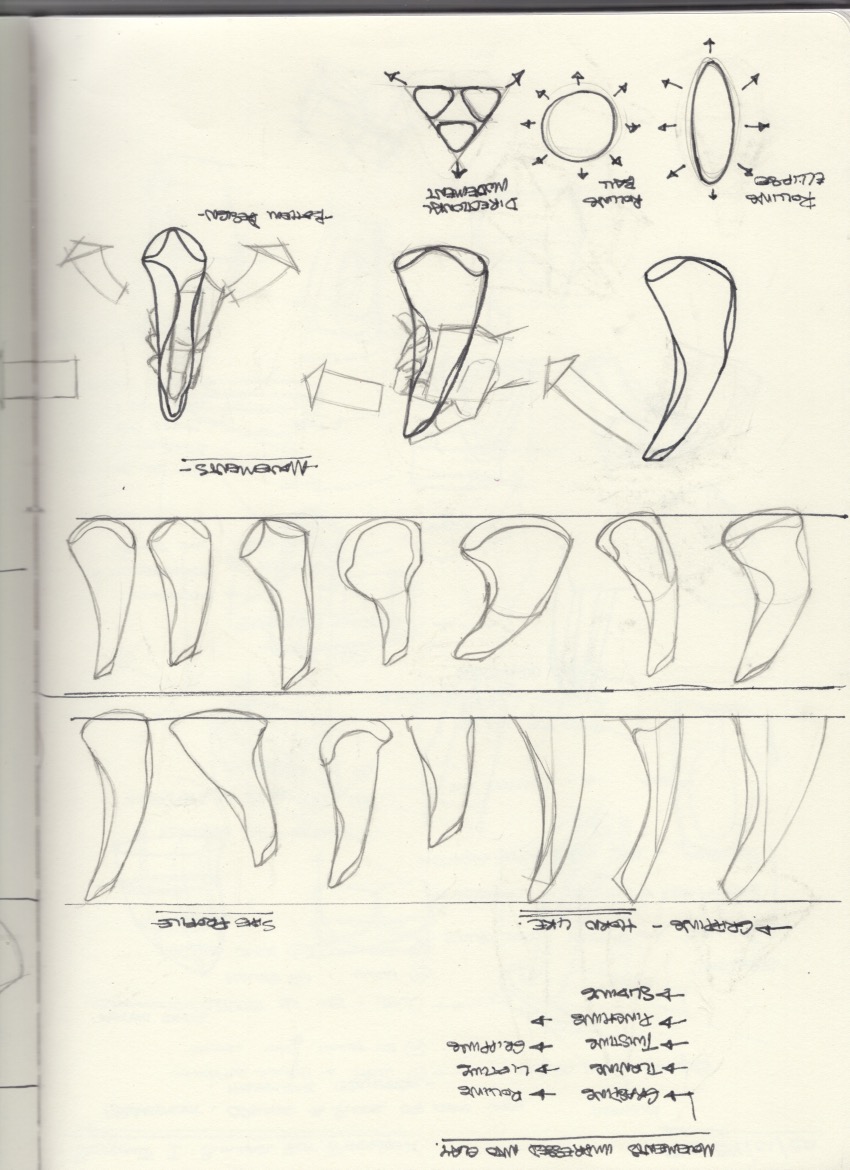 MOVEMENTS IMPRESSED INTO CLAY.
→ GRASPING → ROLLING
→ TURNING → LIFTING
→ TWISTING → GRIPPING
→ PINCHING →
→ SLIDING
→ GRIPPING - HORN LIKE.
SIDE PROFILE
-MOVEMENTS-
-BOTTOM DESIGN-
ROLLING
ELLIPSE
ROLLING
BALL
DIRECTIONAL
MOVEMENT